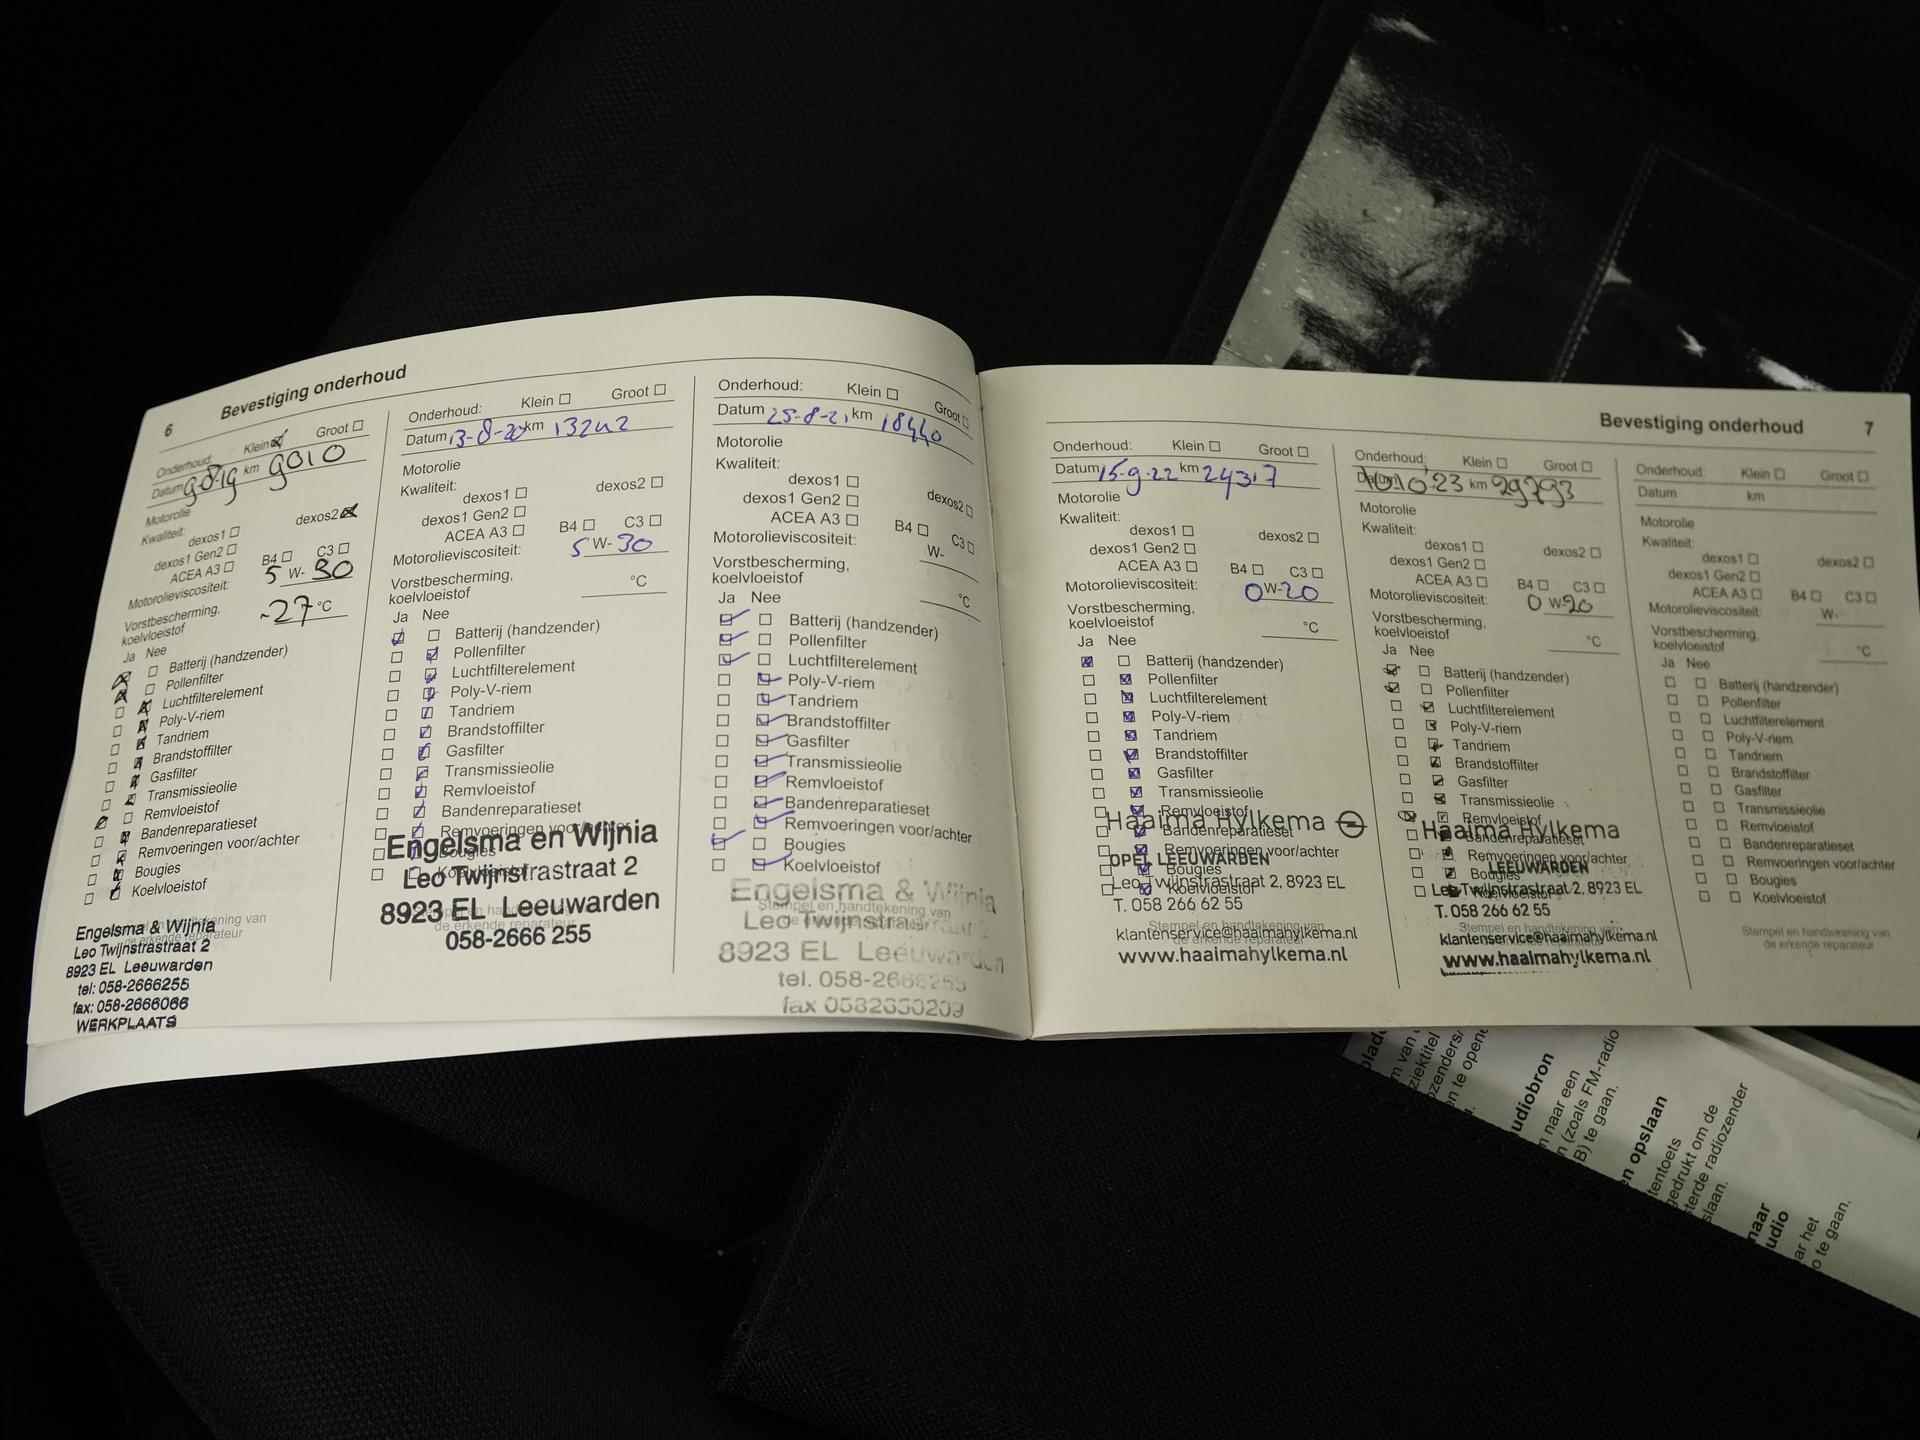 6
Bevestiging onderhoud
Onderhoud: Klein Groot
Datum 9-8-19 km 9010
Motorolie
Kwaliteit:
dexos1 dexos2
dexos1 Gen2
ACEA A3 B4 C3
Motorolieviscositeit: 5 W- 30
Vorstbescherming, koelvloeistof -27 °C
Ja Nee
Batterij (handzender)
Pollenfilter
Luchtfilterelement
Poly-V-riem
Tandriem
Brandstoffilter
Gasfilter
Transmissieolie
Remvloeistof
Bandenreparatieset
Remvoeringen voor/achter
Bougies
Koelvloeistof
Stempel en handtekening van
de erkende reparateur
Engelsma & Wijnia
Leo Twijnstrastraat 2
8923 EL Leeuwarden
tel: 058-2666255
fax: 058-2666066
WERKPLAATS
Onderhoud: Klein Groot
Datum 13-8-20 km 13242
Motorolie
Kwaliteit:
dexos1 dexos2
dexos1 Gen2
ACEA A3 B4 C3
Motorolieviscositeit: 5 W- 30
Vorstbescherming,
koelvloeistof °C
Ja Nee
Batterij (handzender)
Pollenfilter
Luchtfilterelement
Poly-V-riem
Tandriem
Brandstoffilter
Gasfilter
Transmissieolie
Remvloeistof
Bandenreparatieset
Remvoeringen voor/achter
Bougies
Koelvloeistof
Engelsma en Wijnia
Leo Twijnstrastraat 2
8923 EL Leeuwarden
058-2666 255
Stempel en handtekening van
de erkende reparateur
Onderhoud: Klein Groot
Datum 25-8-21 km 18440
Motorolie
Kwaliteit:
dexos1 dexos2
dexos1 Gen2
ACEA A3 B4 C3
Motorolieviscositeit: W-
Vorstbescherming,
koelvloeistof °C
Ja Nee
Batterij (handzender)
Pollenfilter
Luchtfilterelement
Poly-V-riem
Tandriem
Brandstoffilter
Gasfilter
Transmissieolie
Remvloeistof
Bandenreparatieset
Remvoeringen voor/achter
Bougies
Koelvloeistof
Engelsma & Wijnia
Stempel en handtekening van
de erkende reparateur
Leo Twijnstrastraat
8923 EL Leeuwarden
tel. 058-2666255
fax 0582660209
Bevestiging onderhoud
7
Onderhoud: Klein Groot
Datum 15-9-22 km 24317
Motorolie
Kwaliteit:
dexos1 dexos2
dexos1 Gen2
ACEA A3 B4 C3
Motorolieviscositeit: 0 W- 20
Vorstbescherming,
koelvloeistof °C
Ja Nee
Batterij (handzender)
Pollenfilter
Luchtfilterelement
Poly-V-riem
Tandriem
Brandstoffilter
Gasfilter
Transmissieolie
Remvloeistof
Bandenreparatieset
Remvoeringen voor/achter
Bougies
Koelvloeistof
Haaima Hylkema
OPEL LEEUWARDEN
Leo Twijnstrastraat 2, 8923 EL
T. 058 266 62 55
Stempel en handtekening van
de erkende reparateur
klantenservice@haaimahylkema.nl
www.haaimahylkema.nl
Onderhoud: Klein Groot
Datum 10-10-23 km 29793
Motorolie
Kwaliteit:
dexos1 dexos2
dexos1 Gen2
ACEA A3 B4 C3
Motorolieviscositeit: 0 W- 20
Vorstbescherming,
koelvloeistof °C
Ja Nee
Batterij (handzender)
Pollenfilter
Luchtfilterelement
Poly-V-riem
Tandriem
Brandstoffilter
Gasfilter
Transmissieolie
Remvloeistof
Bandenreparatieset
Remvoeringen voor/achter
Bougies
Koelvloeistof
Haaima Hylkema
LEEUWARDEN
Leo Twijnstrastraat 2, 8923 EL
T. 058 266 62 55
Stempel en handtekening van
de erkende reparateur
klantenservice@haaimahylkema.nl
www.haaimahylkema.nl
Onderhoud: Klein Groot
Datum km
Motorolie
Kwaliteit:
dexos1 dexos2
dexos1 Gen2
ACEA A3 B4 C3
Motorolieviscositeit: W-
Vorstbescherming,
koelvloeistof °C
Ja Nee
Batterij (handzender)
Pollenfilter
Luchtfilterelement
Poly-V-riem
Tandriem
Brandstoffilter
Gasfilter
Transmissieolie
Remvloeistof
Bandenreparatieset
Remvoeringen voor/achter
Bougies
Koelvloeistof
Stempel en handtekening van
de erkende reparateur
udiobron
n naar een
n (zoals FM-radio
B) te gaan.
en opslaan
tentoets
gedrukt om de
sterde radiozender
slaan.
naar
udio
ar het
o te gaan.